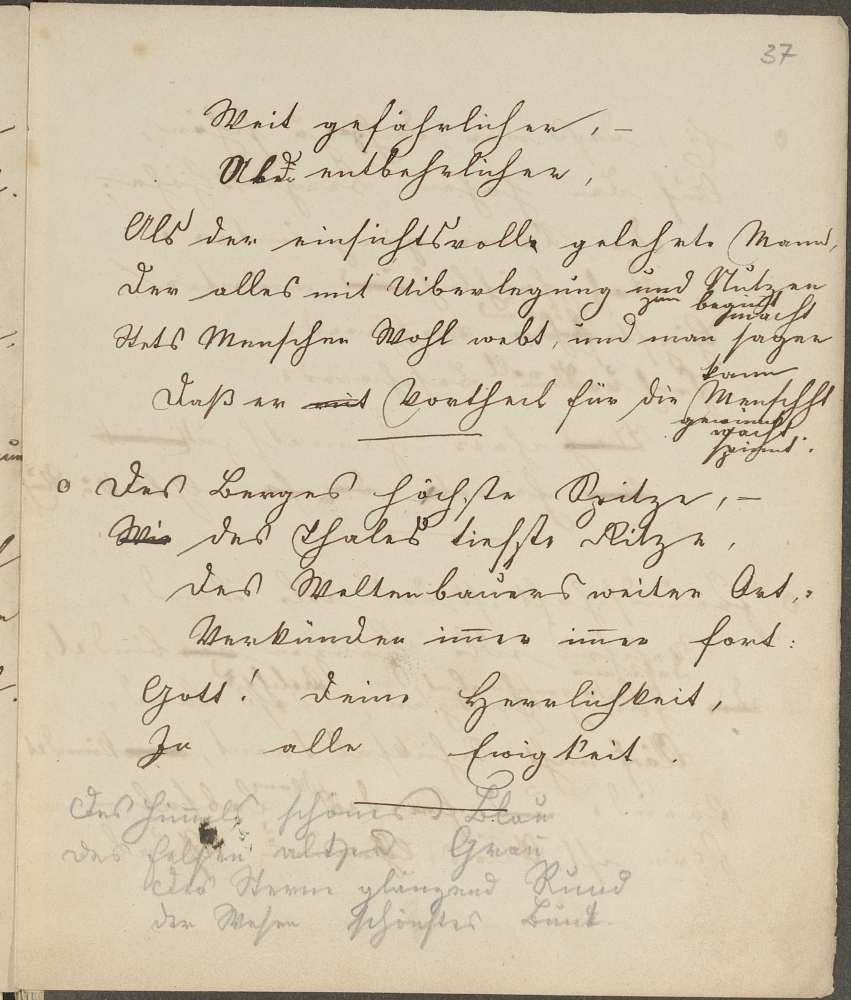 37
Weit gefährlicher, –
Und entbehrlicher,
Als der einsichtsvolle gelehrte Mann,
Der alles mit Uiberlegung und Nutzen
zum beginnt
macht
Stets Menschen Wohl webt, und man sagen
kann
Daß er mit Vortheil für die Menschht
gewinnt
wacht
spinnt.
Des Berges höchste Spitze, –
Wie des Thales tiefste Ritze,
Des Weltenbauers weiter Ort,
Verkünden im̄er im̄er fort:
Gott! Deine Herrlichkeit,
In alle Ewigkeit.
Des Him̄els schönes Blau
des Felsen altes Grau
Der Sterne glänzend Rund
der Wesen schönstes Bunt.